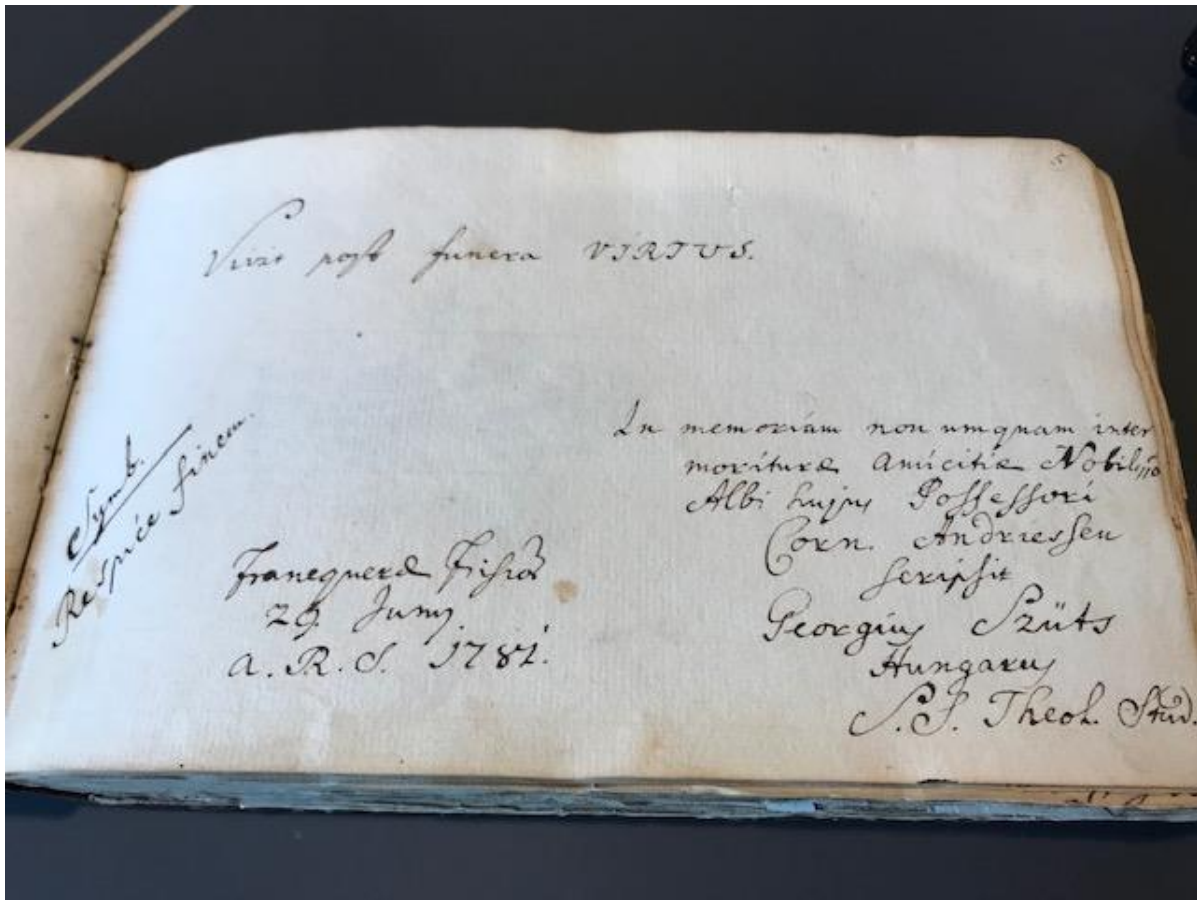 5
Vivit post funera VIRTUS.
Symb.
Respice finem.
Franequeræ Frisior
29 Junij
a. R. S. 1781.
In memoriam non umquam inter
morituræ amicitiæ Nobiliss͞o
Albi hujus Possessori
Corn. Andriessen
scripsit
Georgius Szüts
Hungarus
S. S. Theol. Stud.